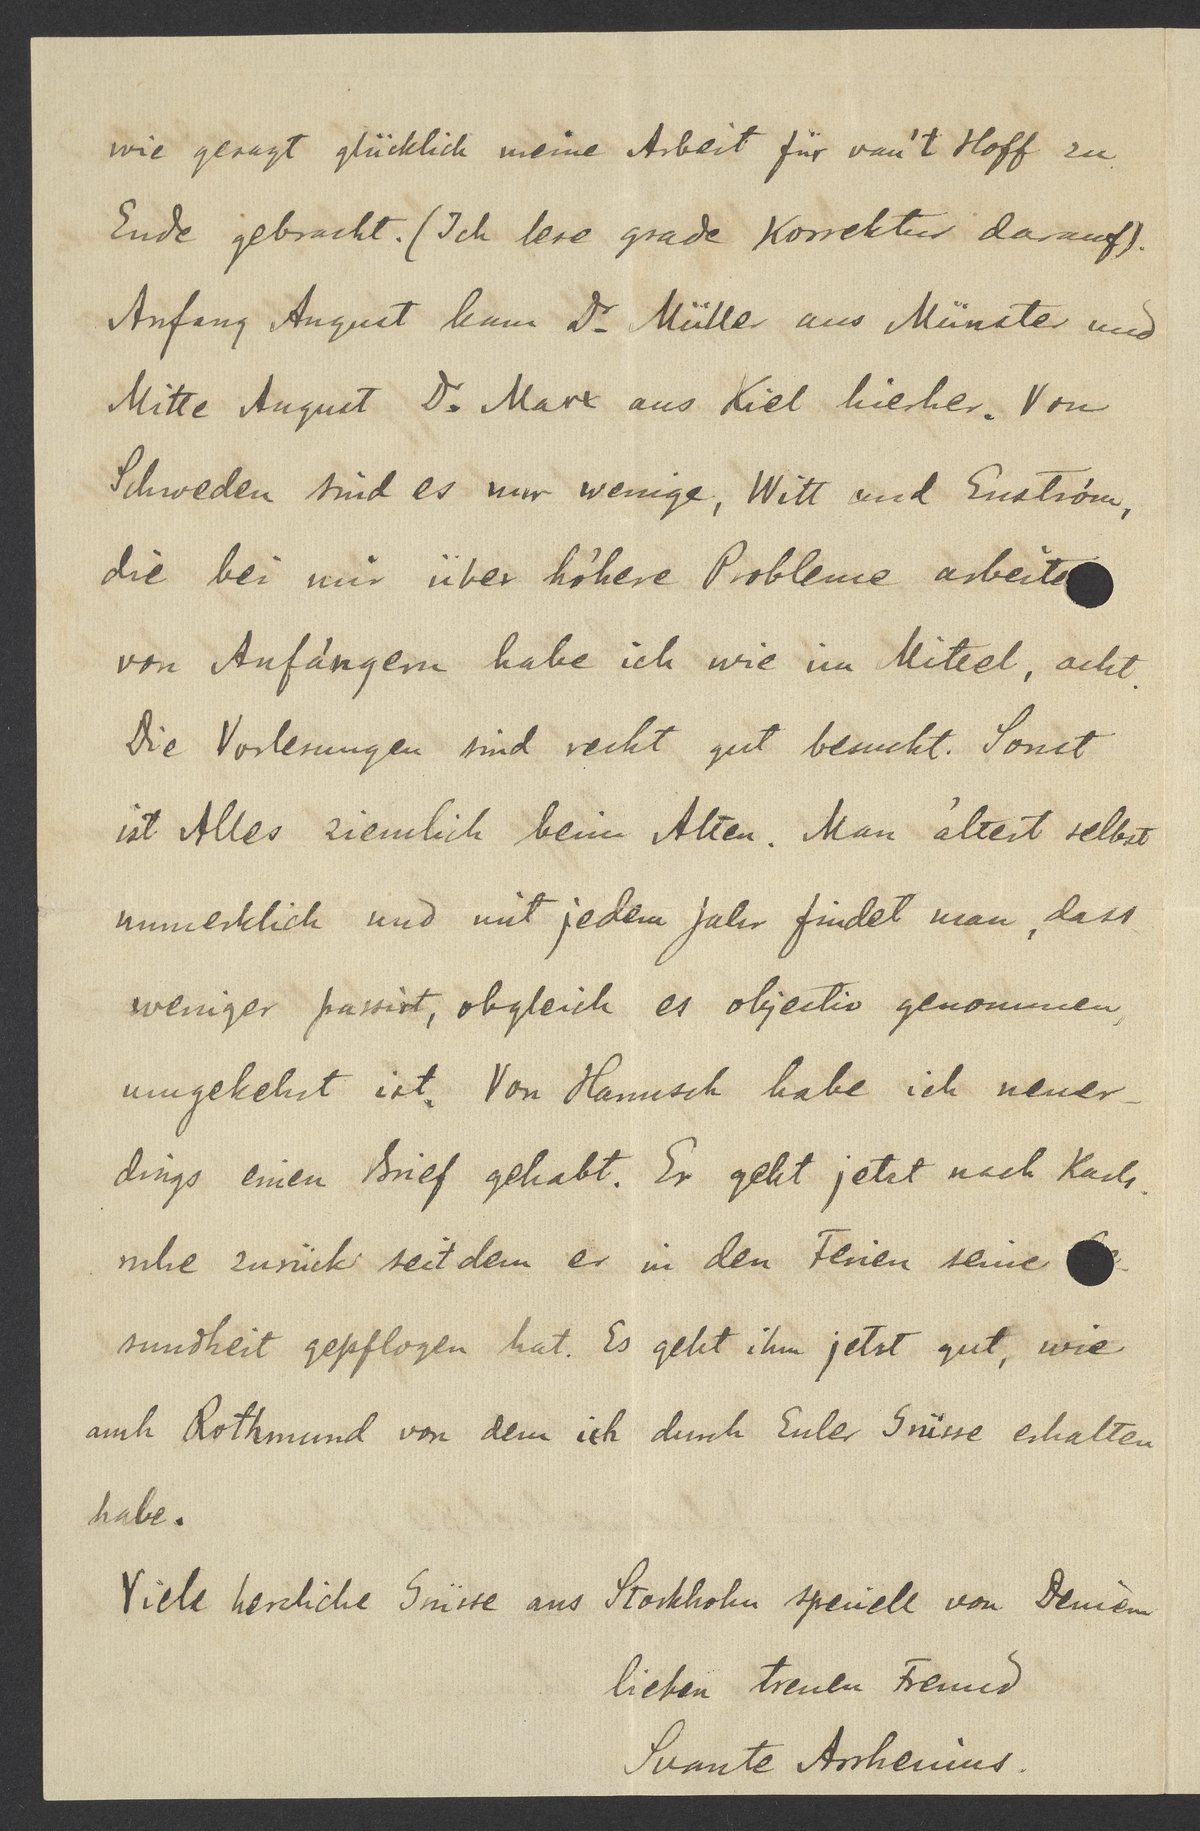 wie gesagt glücklich meine Arbeit für van't Hoff zu
Ende gebracht. (Ich lese grade Korrektur darauf).
Anfang August kam Dr. Müller aus Münster und
Mitte August Dr. Marx aus Kiel hierher. Von
Schweden sind es nur wenige, Witt und Enström,
die bei mir über höhere Probleme arbeite
von Anfängern habe ich wie im Mittel, acht.
Die Vorlesungen sind recht gut besucht. Sonst
ist Alles ziemlich beim Alten. Man ältert selbst
unmerklich und mit jedem Jahr findet man, dass
weniger passirt, obgleich es objectiv genommen,
umgekehrt ist. Von Hanusch habe ich neuer-
dings einen Brief gehabt. Er geht jetzt nach Karls-
ruhe zurück seitdem er in den Ferien seine
sundheit gepflogen hat. Es geht ihm jetzt gut, wie
auch Rothmund von dem ich durch Euler Grüsse erhalten
habe.
Viele herzliche Grüsse aus Stockholm speciell von Deinem
lieben treuen Freund
Svante Arrhenius.